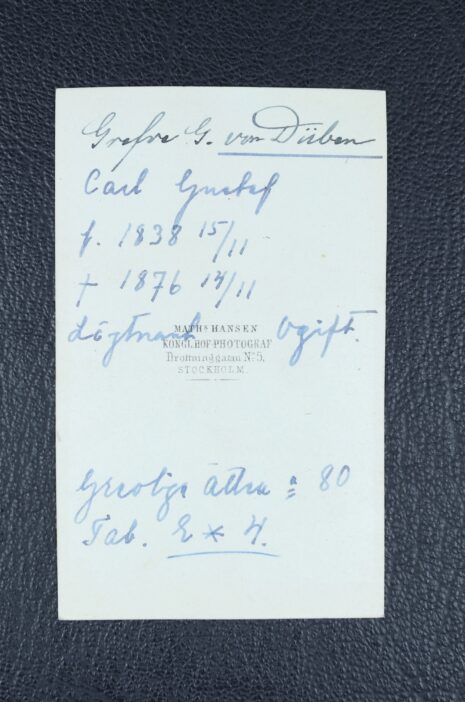 Grefve G. von Düben
Carl Gustaf
f. 1838 15/11
† 1876 14/11
Löjtnant Ogift.
MATHS HANSEN
KONGL. HOF-PHOTOGRAF
Drottninggatan No 5,
STOCKHOLM.
Grevliga ätten 80
Tab. 2 * 4.